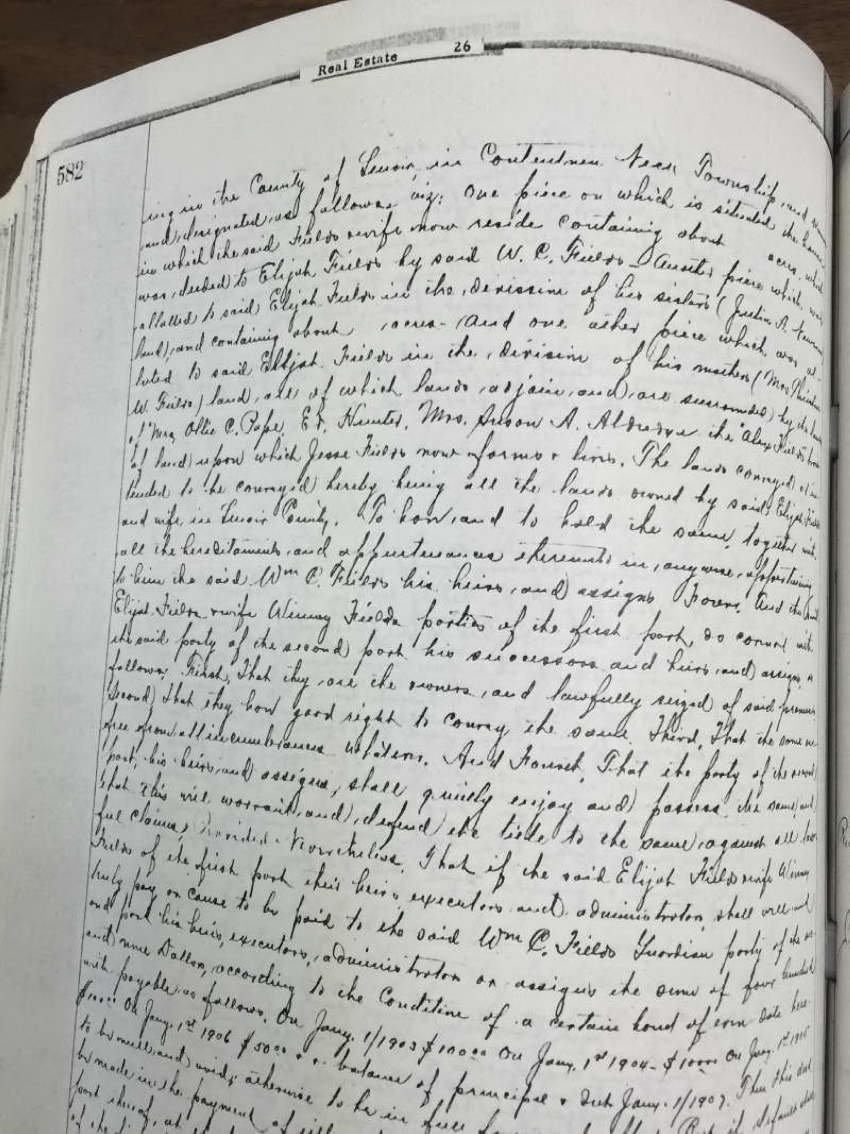 Real Estate 26
582
ing in the County of Lenoir, in Contentnea Neck Township, and
and designated as follows, viz: One piece on which is situated the house
in which the said Fields & wife now reside containing about acres, which
was deeded to Elijah Fields by said W. C. Fields - Another piece which was
allotted to said Elijah Fields in the division of his sisters
land, and containing about acres - And one other piece which was al-
loted to said Elijah Fields in the division of his mothers (Mrs
W. Fields) land, all of which lands adjoin, and are surrounded by the lands
of Mrs Ollie C. Pope, Ed. Hunter, Mrs. Susan A. the Alex Fields
of land upon which Jesse Fields now farms & lives. The lands conveyed or in-
tended to be conveyed hereby being all the lands owned by said Elijah Fields
and wife, in Lenoir County. To have and to hold the same, together with
all the hereditaments and appurtenances thereunto in anywise appertaining
to him the said Wm C. Fields his heirs, and assigns forever. And the said
Elijah Fields & wife Winny Fields parties of the first part, do covenant with
the said party of the second part his successors and heirs, and assigns, as
follows: First, That they are the owners, and lawfully seized of said premises
Second, That they have good right to convey the same. Third, That the same are
free from all incumbrances whatever. And Fourth, That the party of the second
part, his heirs, and assigns, shall quietly enjoy and possess the same, and
that this will warrant and defend the title to the same against all law-
ful claims, Provided Nevertheless, That if the said Elijah Fields & wife Winny
Fields of the first part their heirs, executors and administrators, shall well and
truly pay, or cause to be paid to the said Wm C. Fields Guardian party of the sec-
ond part his heirs, executors, administrators or assigns the sum of four hundred
and nine Dollars, according to the Condition of a certain bond of even date here-
with payable as follows, On Jany. 1/1903 $100.00 On Jany. 1st 1904 - $100.00 On Jany. 1st 1905
$100.00 On Jany. 1st 1906 $50.00 & balance of principal & Jany. 1/1907. Then this deed
to be null and void; otherwise to be in full But if default shall
be made in the payment of
part thereof, at the
of the